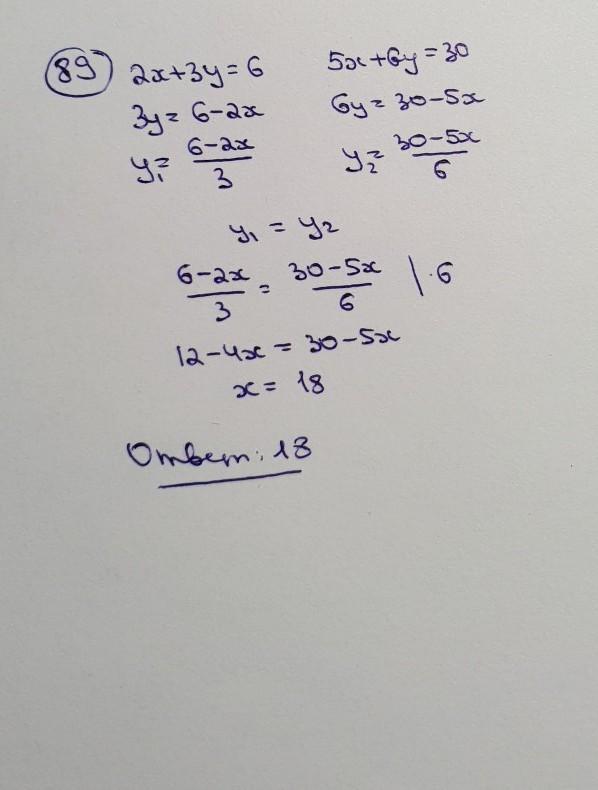 89 2x+3y=6 5x+6y=30
3y=6-2x 6y=30-5x
y₁=(6-2x)/3 y₂=(30-5x)/6
y₁=y₂
(6-2x)/3=(30-5x)/6 |·6
12-4x=30-5x
x=18
Ответ: 18